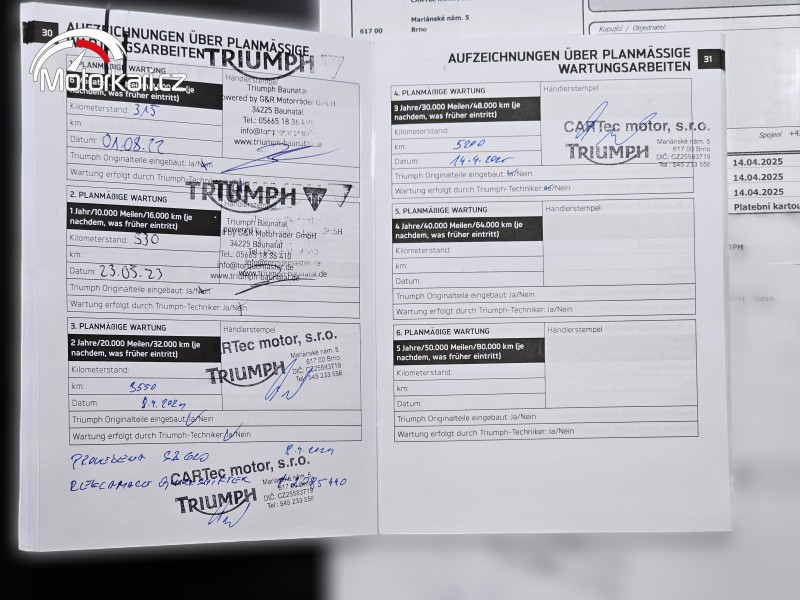 30
AUFZEICHNUNGEN ÜBER PLANMÄSSIGE
WARTUNGSARBEITEN
Motorkari.cz
TRIUMPH
1. PLANMÄßIGE WARTUNG
nachdem, was früher eintritt)
Kilometerstand: 315
km:
Datum: 01.08.22
Triumph Originalteile eingebaut: Ja/Nein
Wartung erfolgt durch Triumph-Techniker: Ja/Nein
Händlerstempel
Triumph Baunatal
powered by G&R Motorräder GmbH
34225 Baunatal
Tel.: 05665 18 36 410
www.triumph-baunatal.de
TRIUMPH
2. PLANMÄßIGE WARTUNG
1 Jahr/10.000 Meilen/16.000 km (je
nachdem, was früher eintritt)
Kilometerstand: 530
km:
Datum: 23.05.23
Triumph Originalteile eingebaut: Ja/Nein
Wartung erfolgt durch Triumph-Techniker: Ja/Nein
Händlerstempel
Triumph Baunatal
powered by G&R Motorräder GmbH
34225 Baunatal
Tel.: 05665 18 36 410
www.triumph-baunatal.de
3. PLANMÄßIGE WARTUNG
2 Jahr/20.000 Meilen/32.000 km (je
nachdem, was früher eintritt)
Kilometerstand:
km: 3550
Datum: 8.4.2024
Triumph Originalteile eingebaut: Ja/Nein
Wartung erfolgt durch Triumph-Techniker: Ja/Nein
Händlerstempel
CARTec motor, s.r.o.
TRIUMPH
Mariánské nám. 5
617 00 Brno
DIČ: CZ25583719
Tel.: 545 233 556
PROVEDENA
8.4.2024
REKLAMACE QUICKSHIFTER
CARTec motor, s.r.o.
TRIUMPH
Mariánské nám. 5
617 00 Brno
DIČ: CZ25583719
Tel.: 545 233 556
AUFZEICHNUNGEN ÜBER PLANMÄSSIGE
WARTUNGSARBEITEN
31
4. PLANMÄßIGE WARTUNG
3 Jahre/30.000 Meilen/48.000 km (je
nachdem, was früher eintritt)
Kilometerstand:
km: 5200
Datum: 14.4.2025
Triumph Originalteile eingebaut: Ja/Nein
Wartung erfolgt durch Triumph-Techniker: Ja/Nein
Händlerstempel
CARTec motor, s.r.o.
TRIUMPH
Mariánské nám. 5
617 00 Brno
DIČ: CZ25583719
Tel.: 545 233 556
5. PLANMÄßIGE WARTUNG
4 Jahre/40.000 Meilen/64.000 km (je
nachdem, was früher eintritt)
Kilometerstand:
km:
Datum:
Triumph Originalteile eingebaut: Ja/Nein
Wartung erfolgt durch Triumph-Techniker: Ja/Nein
Händlerstempel
6. PLANMÄßIGE WARTUNG
5 Jahre/50.000 Meilen/80.000 km (je
nachdem, was früher eintritt)
Kilometerstand:
km:
Datum:
Triumph Originalteile eingebaut: Ja/Nein
Wartung erfolgt durch Triumph-Techniker: Ja/Nein
Händlerstempel
Mariánské nám. 5
617 00 Brno
Kupující / Objednatel:
Spojení
14.04.2025
14.04.2025
14.04.2025
Platební kartou